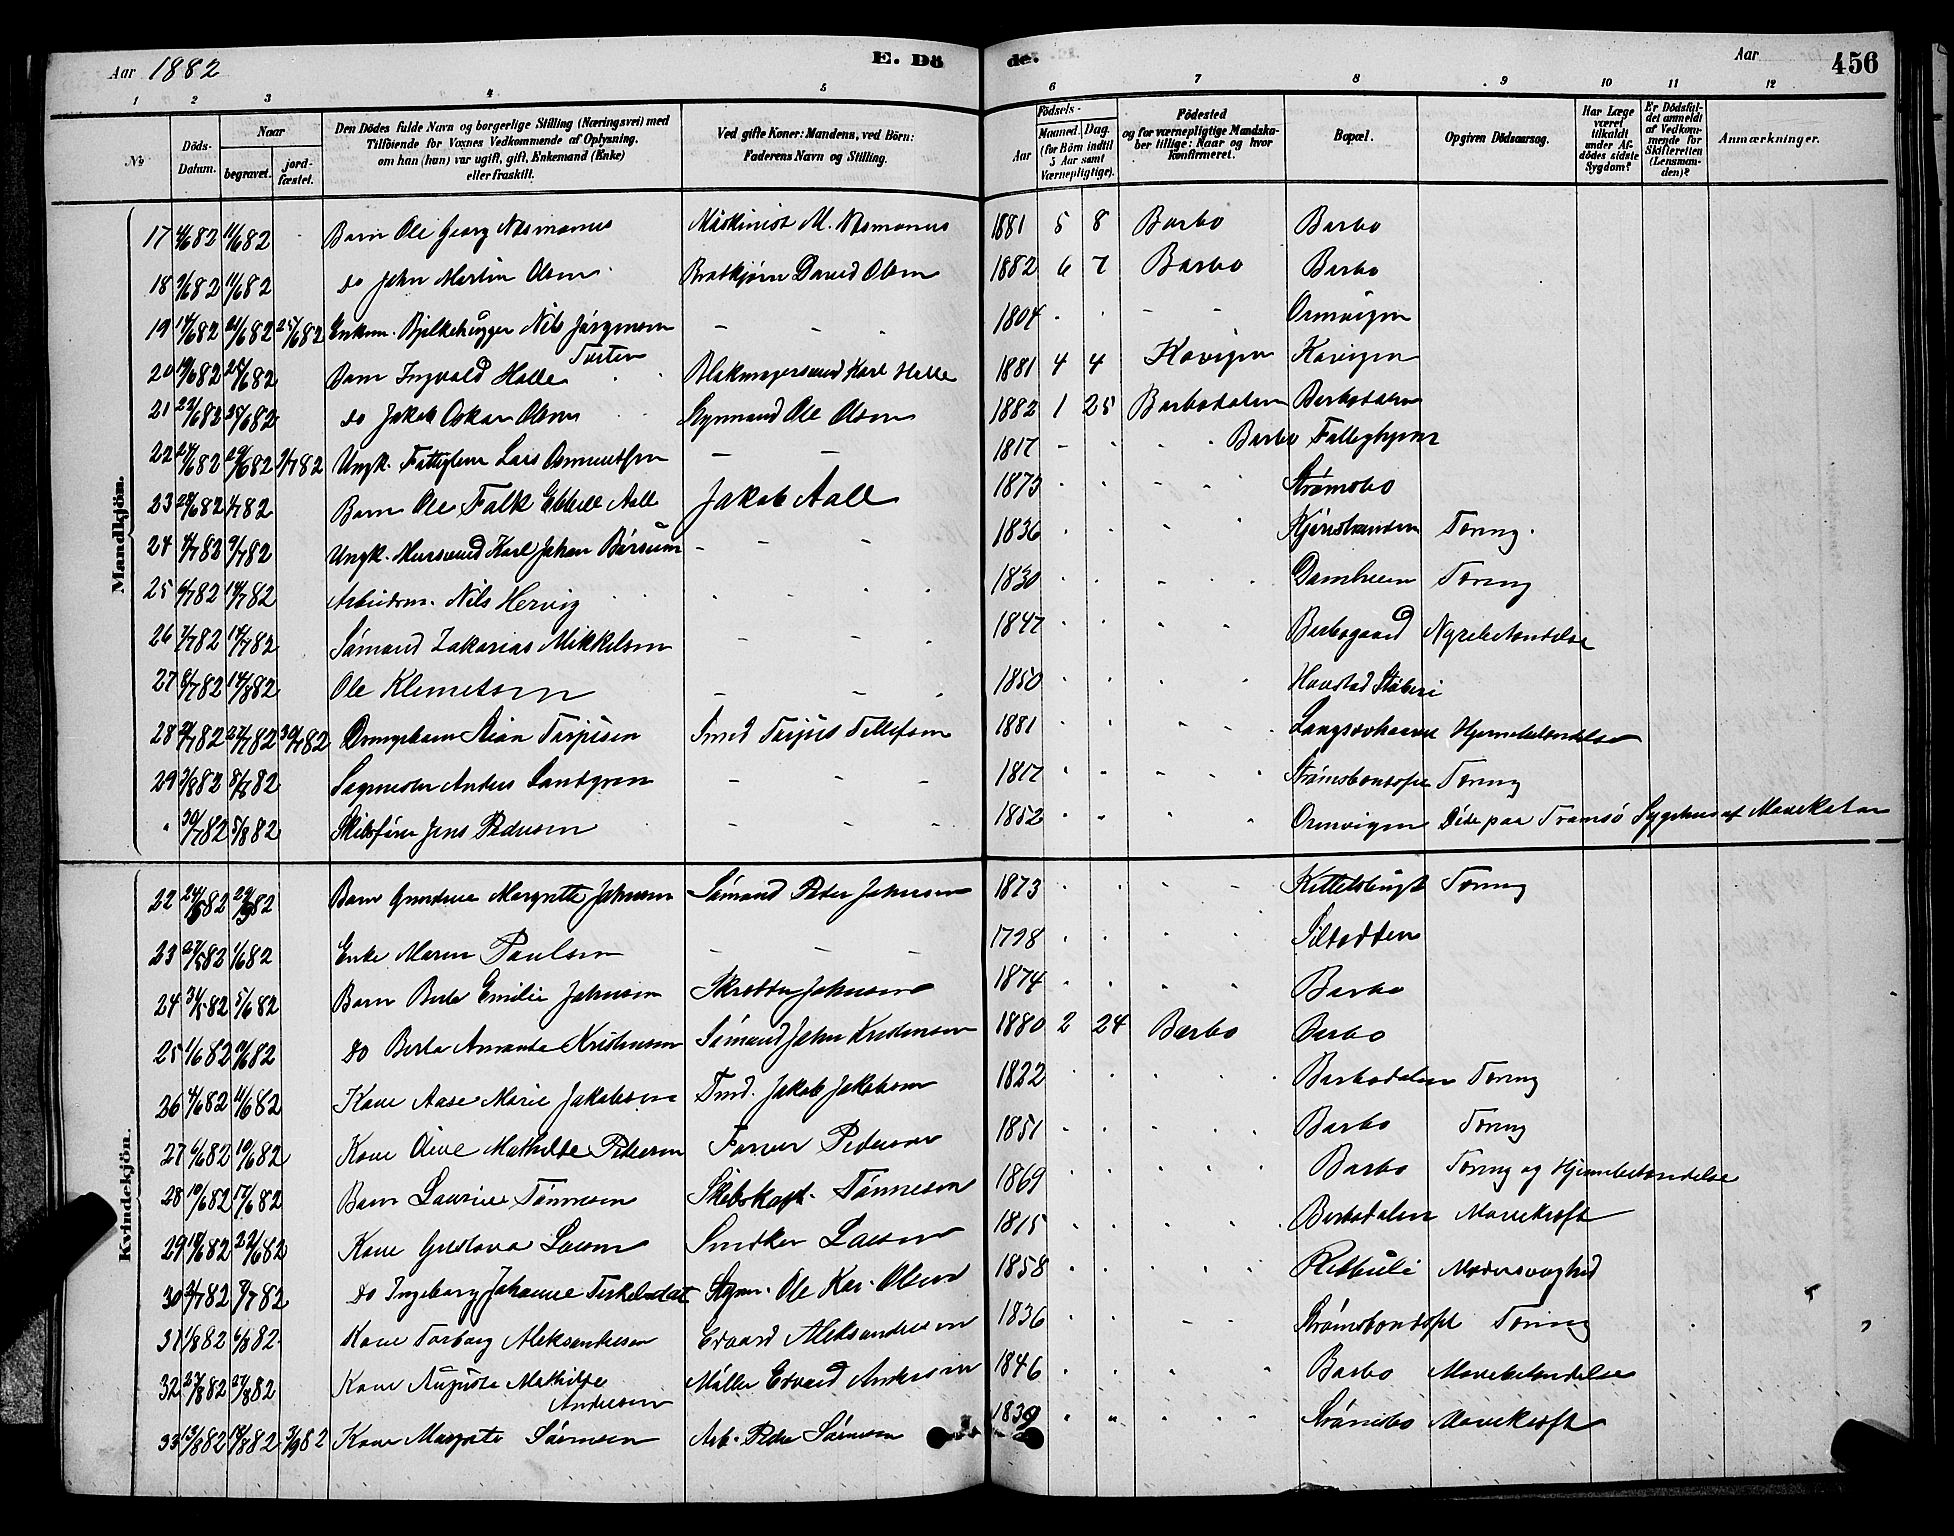 Aar 1882
E. Dö
de.
Aar
456
1 2 3 4 5 6 7 8 9 10 11 12
No
Döds-Datum.
Naar
begravet.
jord-fæstet.
Den Dödes fulde Navn og borgerlige Stilling (Næringsvei) med
Tilföiende for Voxnes Vedkommende af Oplysning,
om han (hun) var ugift, gift, Enkemand (Enke)
eller fraskilt.
Ved gifte Koner: Mandens, ved Börn:
Faderens Navn og Stilling.
Födsels-
Aar
Maaned. Dag.
(for Börn indtil
5 Aar samt
Værnepligtige).
Födested
og for værnepligtige Mandska-
ber tillige: Naar og hvor
konfirmeret.
Bopæl.
Opgiven Dödsaarsag.
Har Læge
været
tilkaldt
under Af-
dödes sidste
Sygdom?
Er Dödsfal-
det anmeldt
af Vedkom-
mende for
Skifteretten
(Lensman-
den)?
Anmærkninger.
Mandkjön.
17 11/682 Barn Ole Georg Asmanus Maskinist M. Asmanus 1881 5 8 Barbo Barbo
18 9/682 11/682 do John Martin Olsen David Olsen 1882 6 7 Barbo Barbo
19 14/682 21/682 25/682 Enkem. Bjelkehugger Nils Jörgensen 1804 Ormvigen
20 19/682 25/682 Barn Ingvald Torsten Halle Karl Halle 1881 4 4 Kavigen Kavigen
21 23/682 25/682 do Jakob Oskar Olsen Ole Olsen 1882 1 25 Barbodalen Barbodalen
22 24/682 29/682 9/782 Ungk. Fattiglem Lars Osmundsen 1817 Barbo Fattighjem
23 28/682 1/782 Barn Ole Falk Ebbell Aall Jakob Aall 1873 Strømsbo
24 4/782 9/782 Ungk. Karl Johan Børsum 1836 Kjørnstranden Tæring.
25 6/782 14/782 Arbeidsm. Nils Hervig 1830 Damheien Tæring
26 7/782 14/782 Sömand Zakarias Mikkelsen 1847 Barbogaard Nyrebetændelse
27 6/782 14/882 Ole Klemetsen 1850 Havstad
28 21/782 27/782 30/782 Stian Terjesen Smed Terjus Tellefsen 1881 Langsævhaven Hjernebetændelse
29 3/882 8/882 Sagmester Anders Sandgren 1817 Strømsbontofte Tæring
" 30/782 5/882 Skibsfører Jens Pedersen 1852 Ormvigen Døde paa Tromsö Sygehus af Mavekatar
Kvindekjön.
22 24/582 29/582 Barn Margrethe Johnsen Sömand Peder Johnsen 1873 Kittelsbugt Tæring
23 27/582 1/682 Enke Maren Paulsen 1798 Sildodden
24 31/582 5/682 Barn Berte Emilie Johnsen Skrædder Johnsen 1874 Barbo
25 1/682 9/682 do Berta Amanda Kristensen Sömand John Kristensen 1880 2 24 Barbo Barbo
26 4/682 11/682 Kone Aase Marie Jakobsen Tmd. Jakob Jakobsen 1822 Barbodalen Tæring
27 6/682 10/682 Kone Oline Mathilde Pedersen Farver Pedersen 1851 Barbo Tæring
28 10/682 17/682 Barn Laurine Tønnesen Skibskapt. Tønnesen 1869 Barbo Tæring og Hjernebetændelse
29 18/682 22/682 Kone Gustava Larsen Snedker Larsen 1815 Barbodalen Mavekræft
30 2/782 9/782 do Ingeborg Johanne Terkelsdat Ole Kar. Olsen 1858 Modersvaghed
31 1/882 6/882 Kone Torborg Aleksandersen Edvard Aleksandersen 1836 Strømsbontofte Tæring
32 23/882 27/882 Kone Augusta Mathilde Andersen Møller Edvard Andersen 1846 Barbo Mavebetændelse
33 13/882 18/882 3/982 Kone Margrete Sörensen Arb. Peder Sörensen 1839 Strömsbo Mavekræft